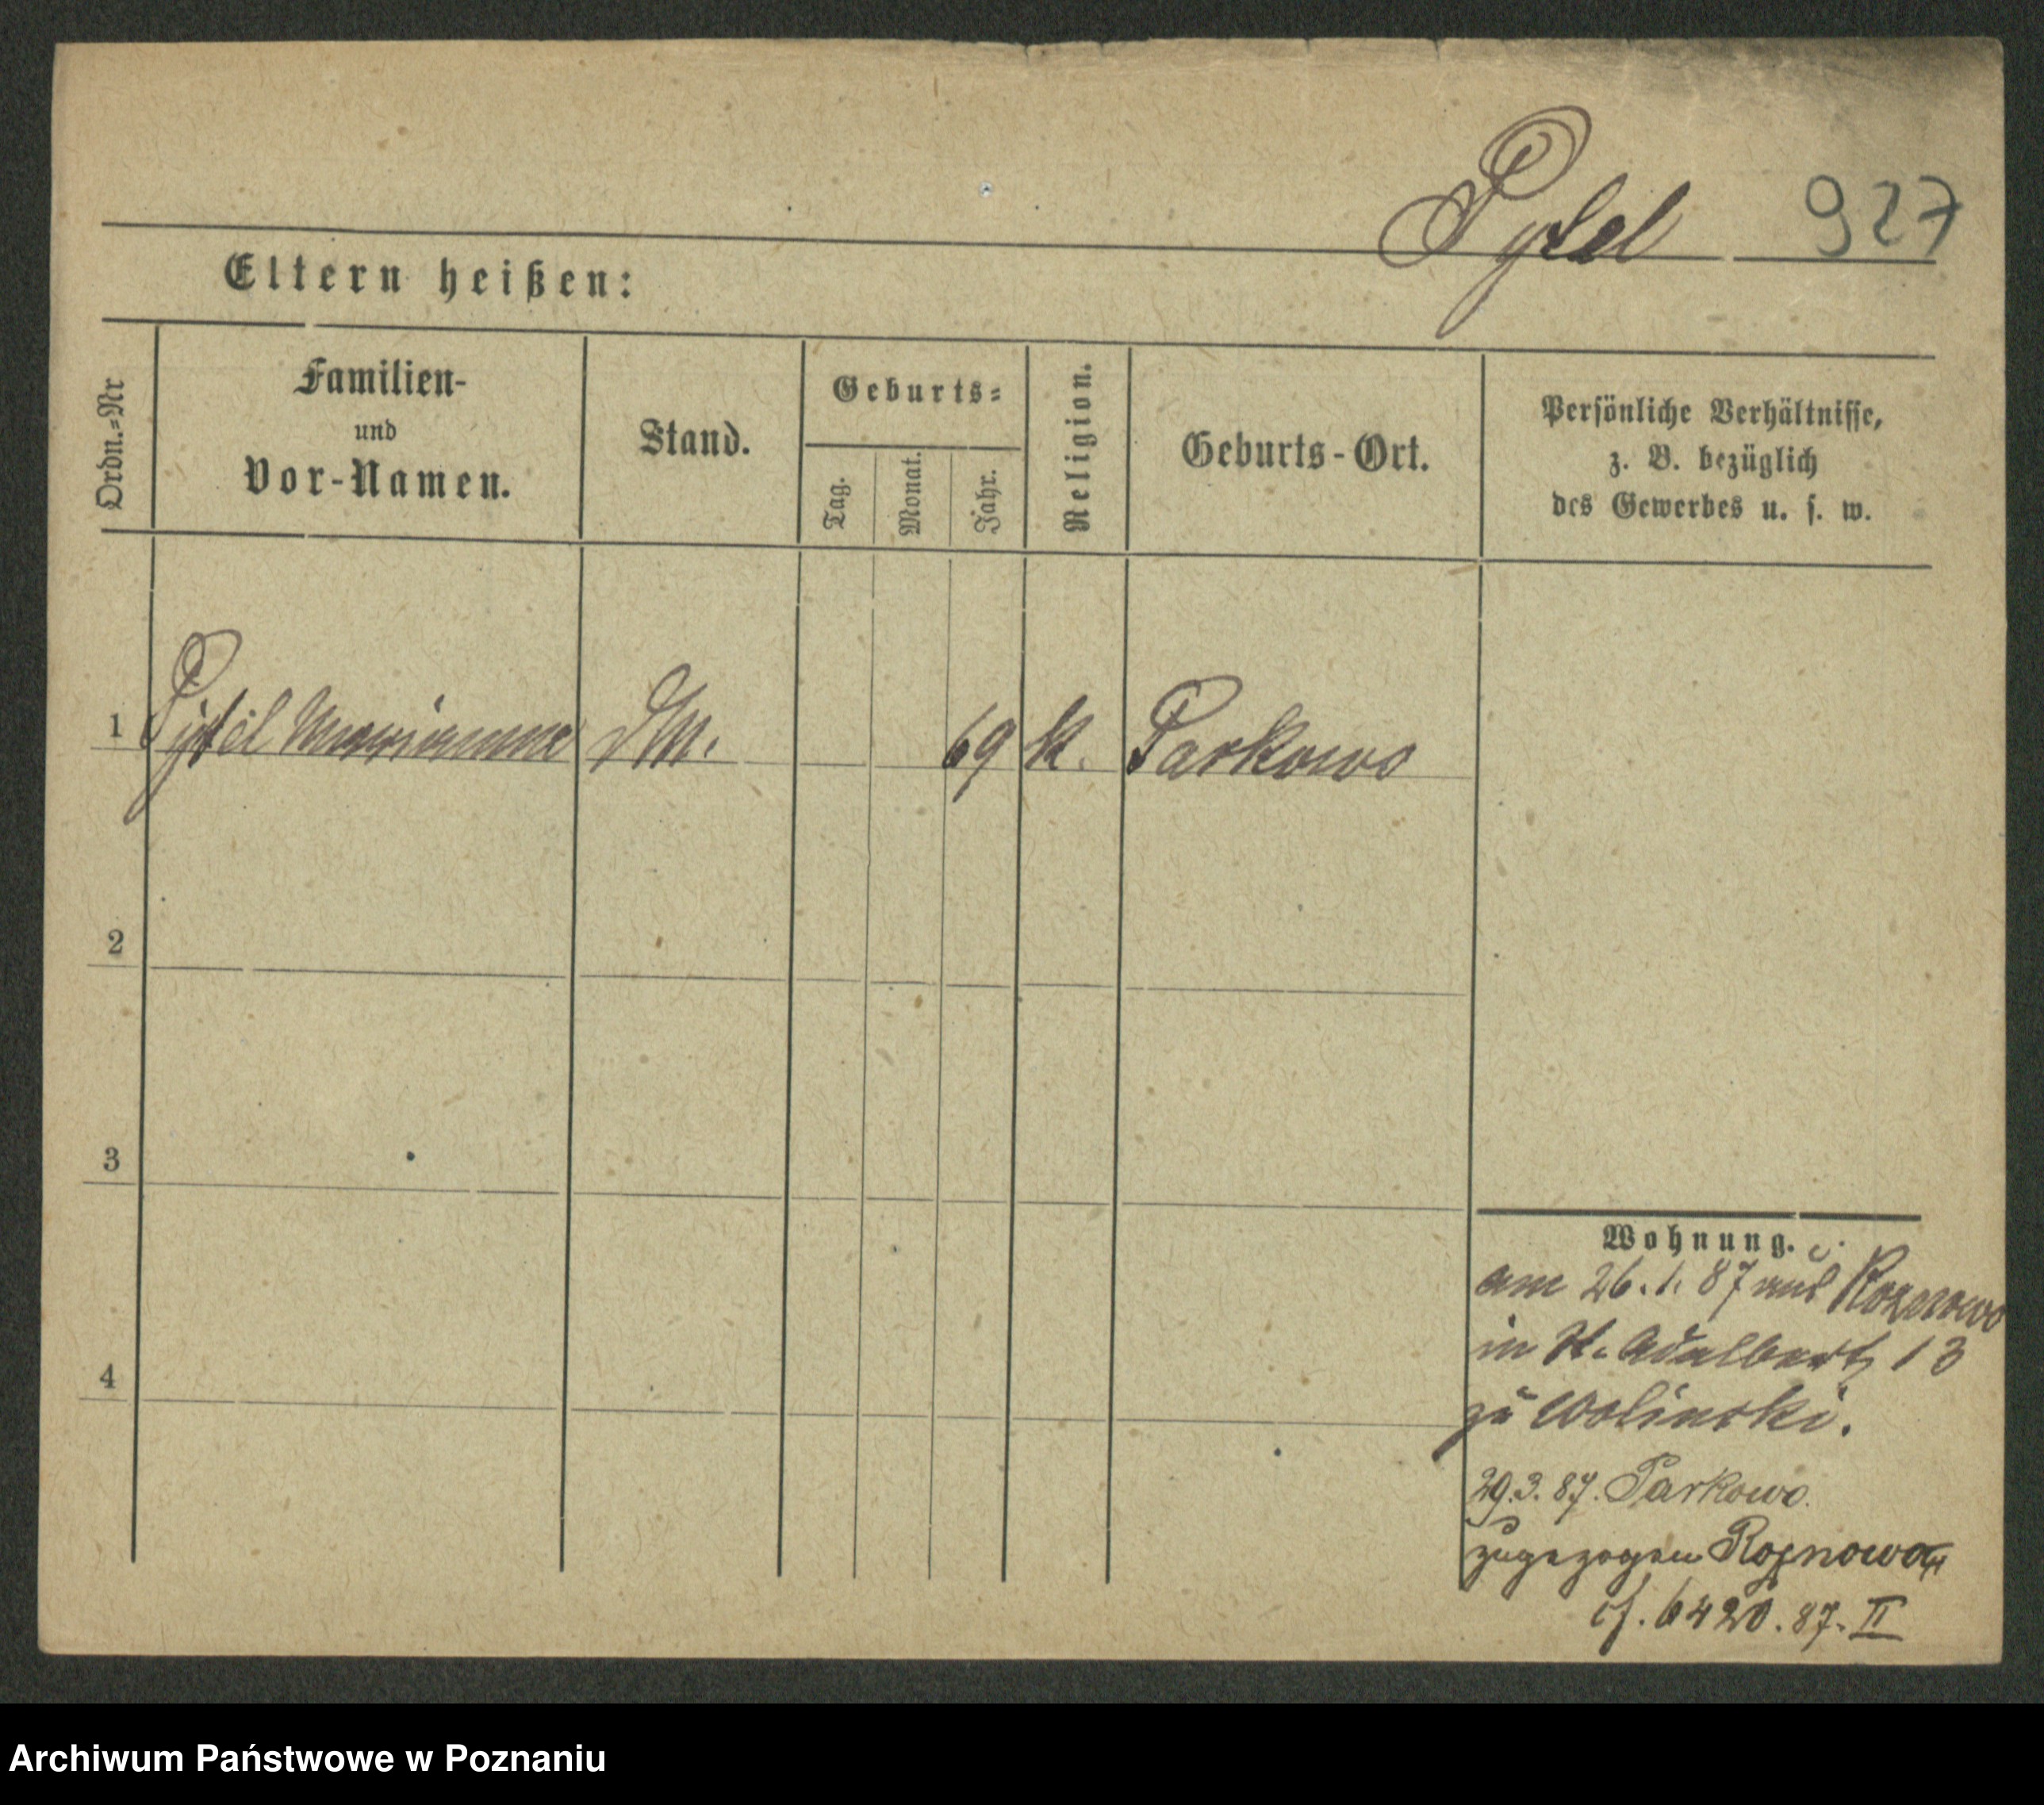 Pytel 927
Eltern heißen:
Ordn.-Nr
Familien-
und
Vor-Namen.
Stand.
Geburts-
Tag.
Monat.
Jahr.
Religion.
Geburts-Ort.
Persönliche Verhältnisse,
z. B. bezüglich
des Gewerbes u. s. w.
1 Pytel Marianna DM. 69 k. Parkowo
2
3
4
Wohnung.
am 26.1.87 aus Roznowo
in St. Adalbert 13
zu Wolinski.
29.3.87. Parkowo.
zugezogen Roznowo
cf. 6420.87.II
Archiwum Państwowe w Poznaniu